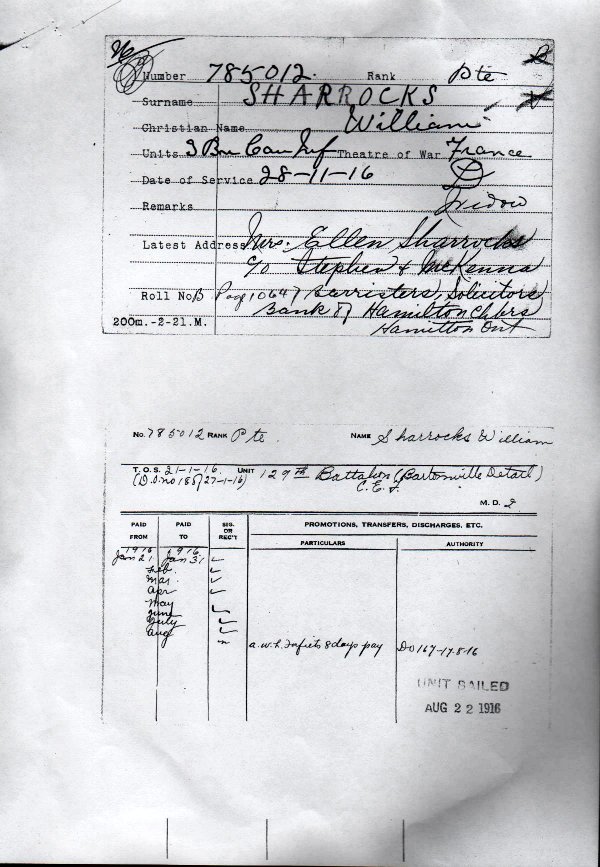 Number 785012. Rank Pte
Surname SHARROCKS
Christian Name William
Units 3 Bn Can Inf Theatre of War France
Date of Service 28-11-16 D
Remarks Widow
Latest Address Mrs. Ellen Sharrocks
c/o Stephen & McKenna
Roll No B Page 10647 Barristers, Solicitors
Bank of Hamilton Chbrs
200m.-2-21.M. Hamilton Ont
No. 785012 RANK Pte NAME Sharrocks William
T.O.S. 21-1-16. UNIT 129th Battalion (Bartonville Detail)
(D.O. no 27-1-16) C.E.F.
M. D. 2
PAID FROM PAID TO SIG. OR REC'T PROMOTIONS, TRANSFERS, DISCHARGES, ETC.
PARTICULARS AUTHORITY
1916 1916
Jan 21 Jan 31
Feb.
Mar.
Apr
May
June
July
Aug
a.w.l. forfeits 8 days pay DO 167-17-8-16
UNIT SAILED
AUG 22 1916